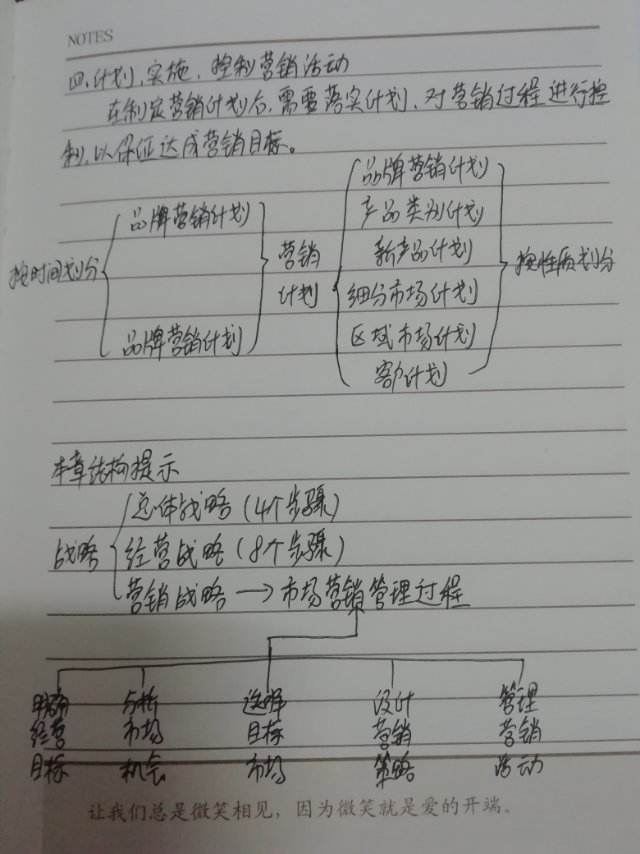 NOTES
四、计划,实施,控制营销活动
在制定营销计划后,需要落实计划,对营销过程进行控
制,以保证达成营销目标。
按时间划分
品牌营销计划
品牌营销计划
营销
计划
品牌营销计划
产品类别计划
新产品计划
细分市场计划
区域市场计划
客户计划
按性质划分
本章结构提示
战略
总体战略(4个步骤)
经营战略(8个步骤)
营销战略→市场营销管理过程
明确 分析 选择 设计 管理
经营 市场 目标 营销 营销
目标 机会 市场 策略 活动
让我们总是微笑相见,因为微笑就是爱的开端。